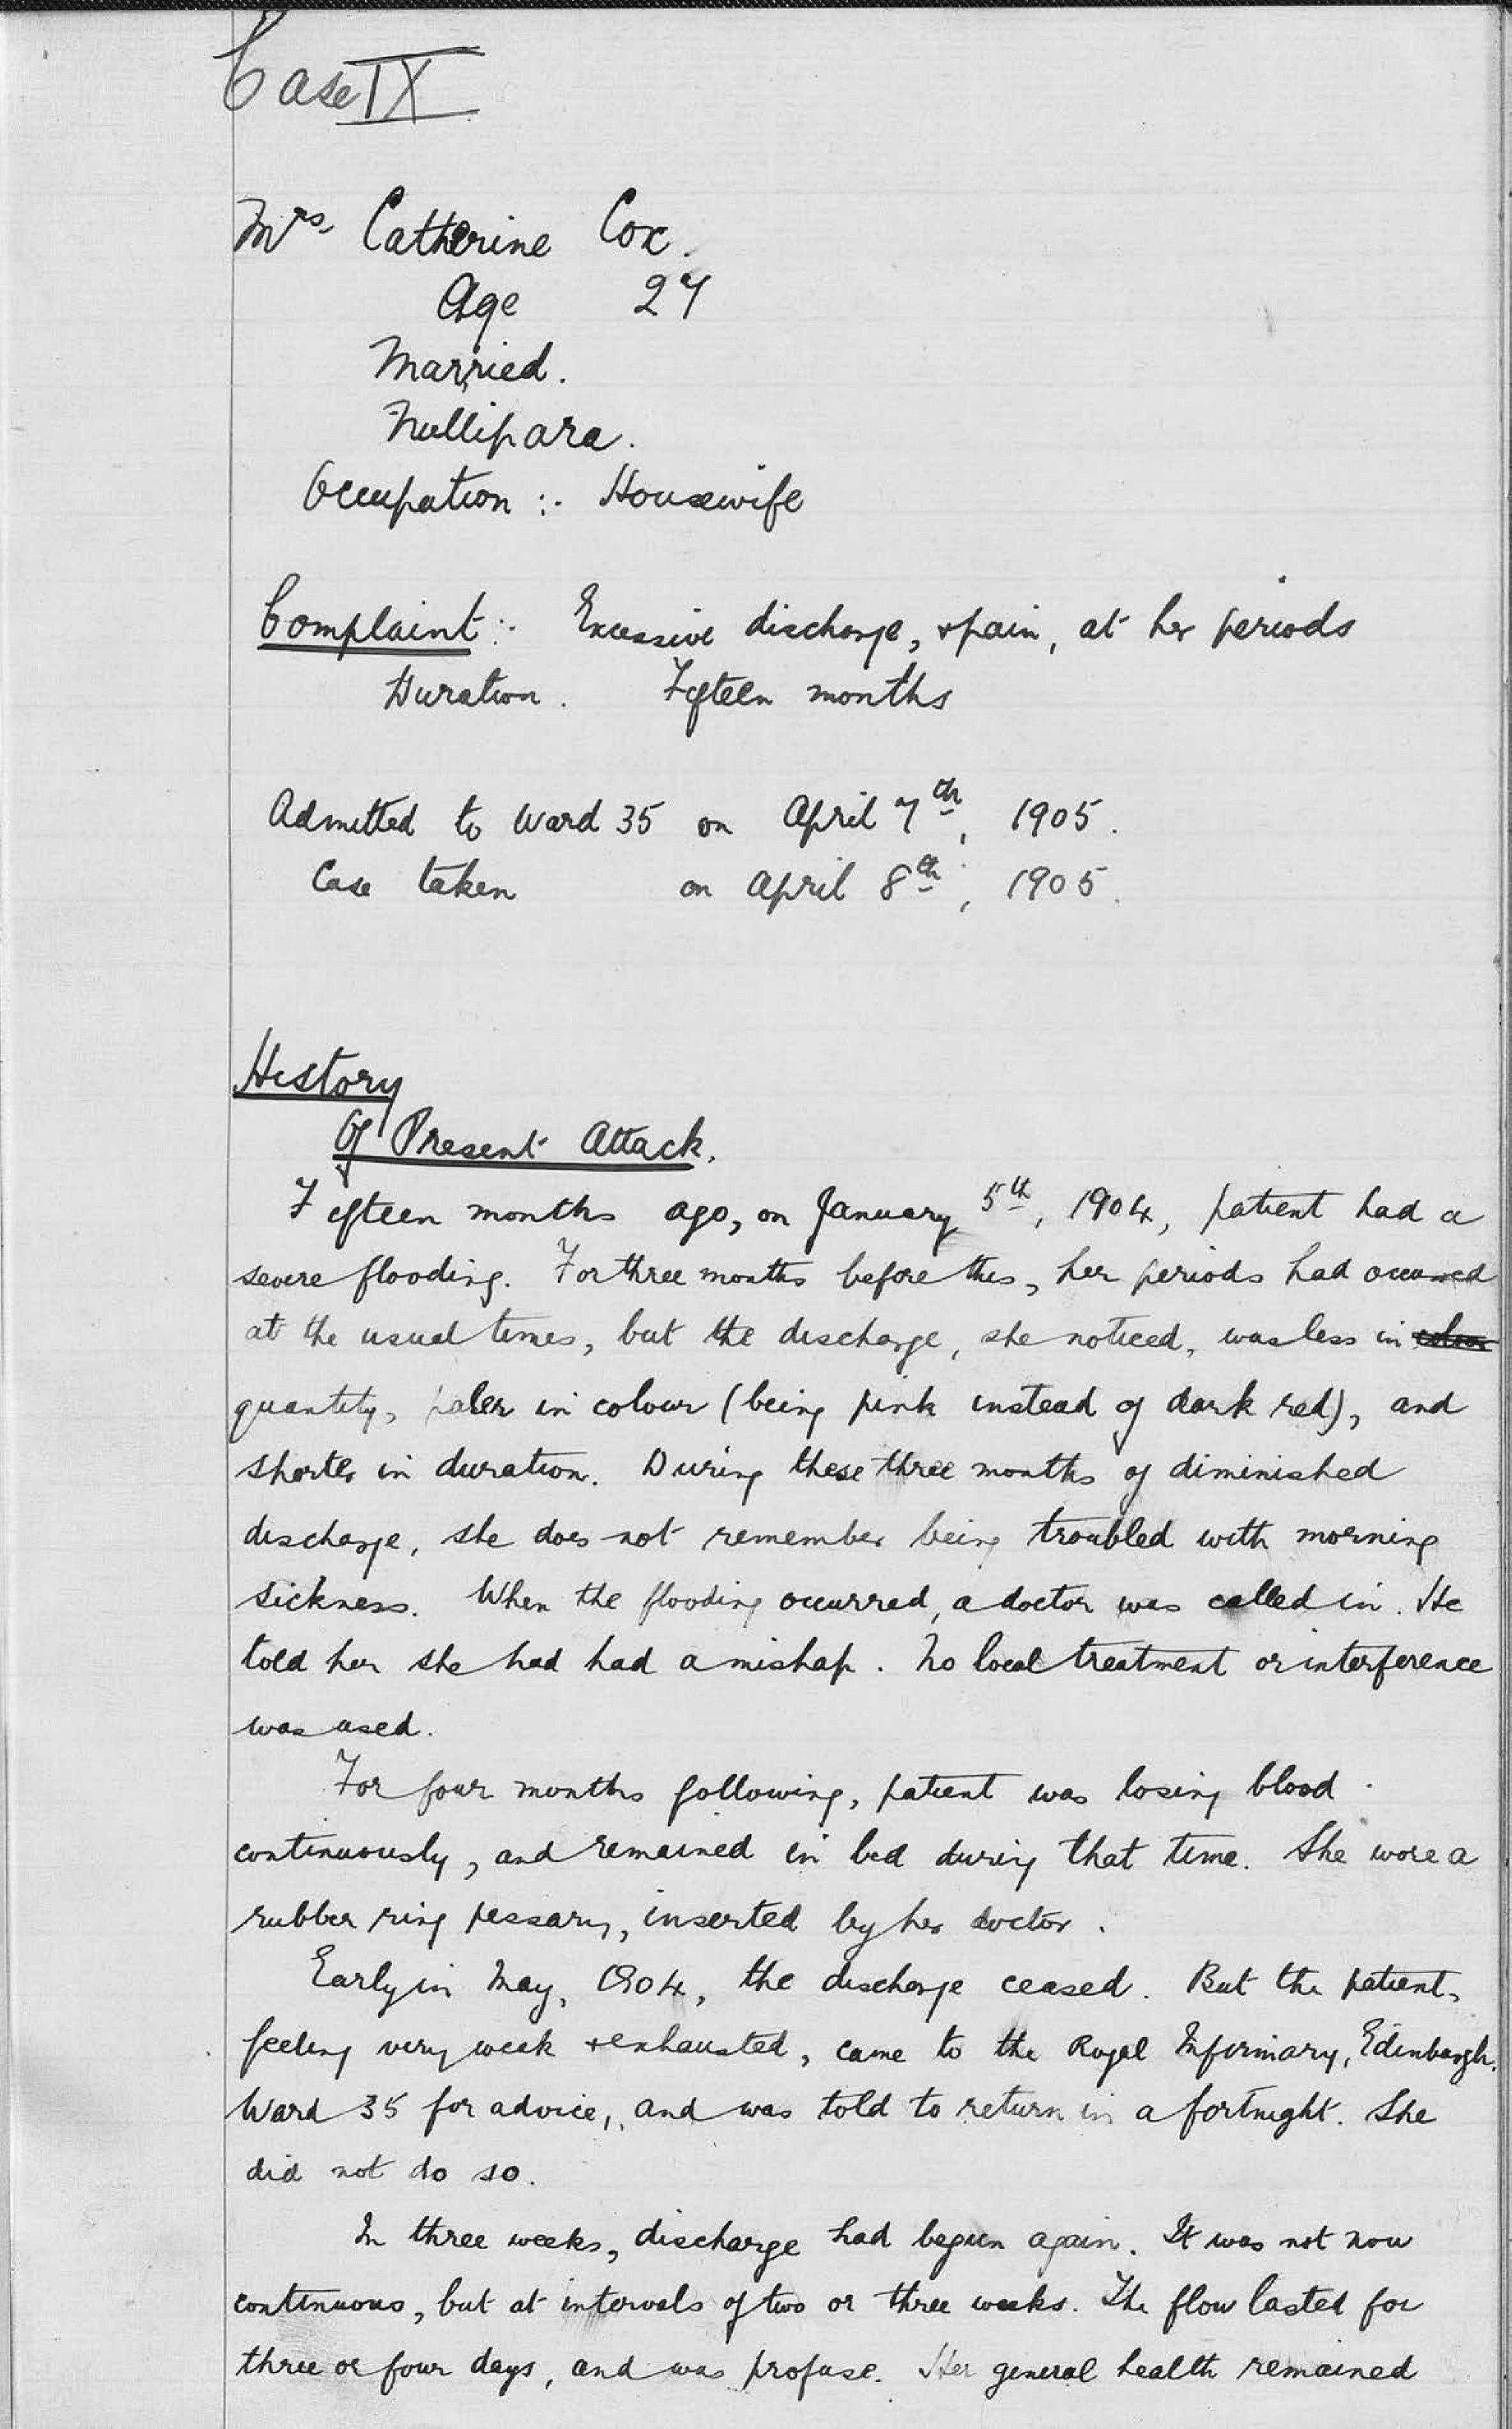 Case IX
Mrs. Catherine Cox.
Age 27
Married.
Nullipara.
Occupation :- Housewife
Complaint :- Excessive discharge, + pain, at her periods
Duration. Fifteen months
Admitted to Ward 35 on April 7th, 1905.
Case taken on April 8th, 1905.
History
Of Present Attack.
Fifteen months ago, on January 5th, 1904, patient had a
severe flooding. For three months before this, her periods had occurred
at the usual times, but the discharge, she noticed, was less in colour
quantity, paler in colour (being pink instead of dark red), and
shorter in duration. During these three months of diminished
discharge, she does not remember being troubled with morning
sickness. When the flooding occurred, a doctor was called in. He
told her she had had a mishap. No local treatment or interference
was used.
For four months following, patient was losing blood
continuously, and remained in bed during that time. She wore a
rubber ring pessary, inserted by her doctor.
Early in May, 1904, the discharge ceased. But the patient,
feeling very weak + exhausted, came to the Royal Infirmary, Edinburgh.
Ward 35 for advice, and was told to return in a fortnight. She
did not do so.
In three weeks, discharge had begun again. It was not now
continuous, but at intervals of two or three weeks. The flow lasted for
three or four days, and was profuse. Her general health remained